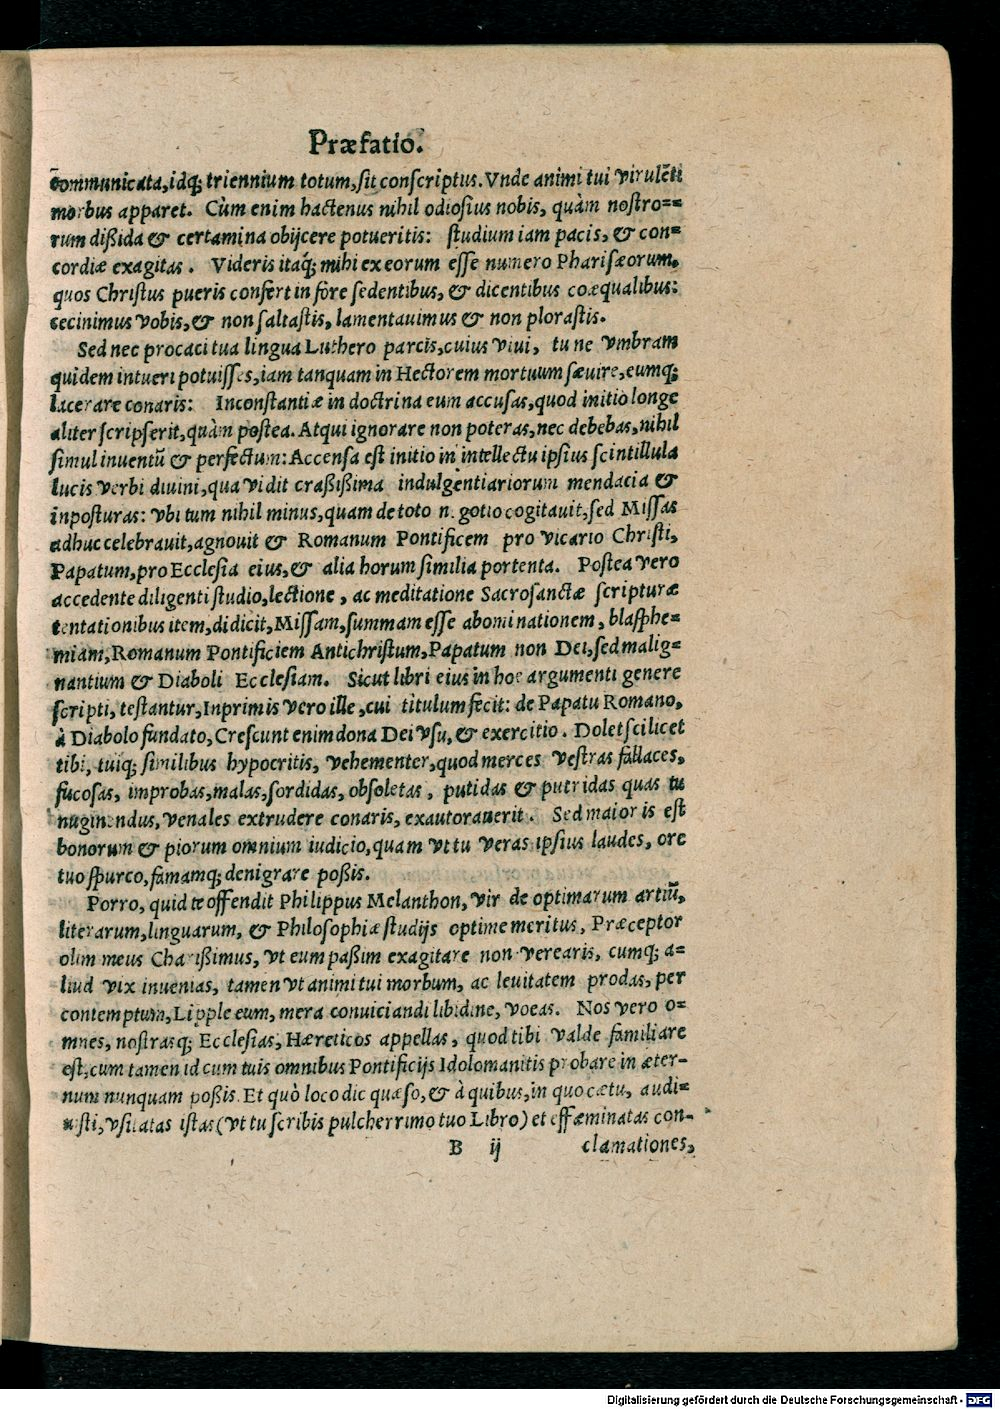 Præfatio.
communicata,idq; triennium totum,sit conscriptus. Vnde animi tui virulẽti
morbus apparet. Cùm enim hactenus nihil odiosius nobis, quàm nostro==
rum dißidia & certamina obijcere potueritis: studium iam pacis, & con=
cordiæ exagitas. Videris itaq; mihi ex eorum esse numero Pharisæorum,
quos Christus pueris confert in fôre sedentibus, & dicentibus coæqualibus:
cecinimus vobis,& non saltastis, lamentauimus & non plorastis.
Sed nec procaci tua lingua Luthero parcis,cuius viui, tu ne vmbram
quidem intueri potuisses,iam tanquam in Hectorem mortuum sæuire,eumq;
lacerare conaris: Inconstantiæ in doctrina eum accusas,quod initio longe
aliter scripserit,quàm postea. Atqui ignorare non poteras,nec debebas,nihil
simul inuentũ & perfectum: Accensa est initio in intellectu ipsius scintillula
lucis verbi diuini,qua vidit craßißima indulgentiariorum mendacia &
inposturas: vbi tum nihil minus,quam de toto negotio cogitauit,sed Missas
adhuc celebrauit,agnouit & Romanum Pontificem pro vicario Christi,
Papatum,pro Ecclesia eius,& alia horum similia portenta. Postea vero
accedente diligenti studio,lectione, ac meditatione Sacrosanctæ scripturæ
tentationibus item,didicit,Missam,summam esse abominationem, blasphe=
miam,Romanum Pontificiem Antichristum,Papatum non Dei,sed malig=
nantium & Diaboli Ecclesiam. Sicut libri eius in hoc argumenti genere
scripti, testantur,Inprimis vero ille,cui titulum fecit: de Papatu Romano,
à Diabolo fundato,Crescunt enim dona Dei vsu,& exercitio. Dolet scilicet
tibi, tuiq; similibus hypocritis, vehementer,quod merces vestras fallaces,
fucosas, improbas,malas,sordidas, obsoletas, putidas & putridas quas tu
nugiuendus, venales extrudere conaris, exautorauerit. Sed maior is est
bonorum & piorum omnium iudicio,quam vt tu veras ipsius laudes, ore
tuo spurco,famamq; denigrare poßis.
Porro, quid te offendit Philippus Melanthon, vir de optimarum artiũ,
literarum,linguarum, & Philosophiæ studijs optime meritus, Præceptor
olim meus Charißimus, vt eum paßim exagitare non verearis, cumq; a=
liud vix inuenias, tamen vt animi tui morbum, ac leuitatem prodas, per
contemptum,Lippleeum, mera conuiciandi libidine, voeas. Nos vero o=
mnes, nostrasq; Ecclesias, Hæreticos appellas, quod tibi valde familiare
est,cum tamen id cum tuis omnibus Pontificijs Idolomanitis probare in æter-
num nunquam poßis. Et quò loco dic quæso,& à quibus,in quo cœtu, audi=
uisti,vsitatas istas (vt tu scribis pulcherrimo tuo Libro) et effæminatas con-
B ij clamationes,
Digitalisierung gefördert durch die Deutsche Forschungsgemeinschaft - DFG